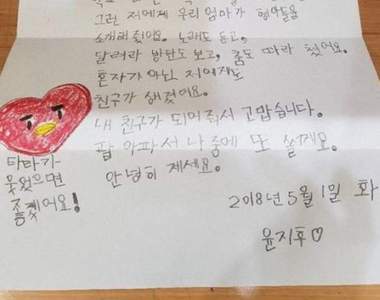 그런 저에게 우리 엄마가 형아들을
소개해 줬어요. 노래도 듣고,
달려라 방탄도 보고, 춤도 따라 췄어요.
혼자가 아닌 저에게도
친구가 생겼어요.
내 친구가 되어줘서 고맙습니다.
팔 아파서 나중에 또 쓸게요.
안녕히 계세요.
2018년 5월 1일 화
윤지후♡
타타가
웃었으면
좋겠어요!